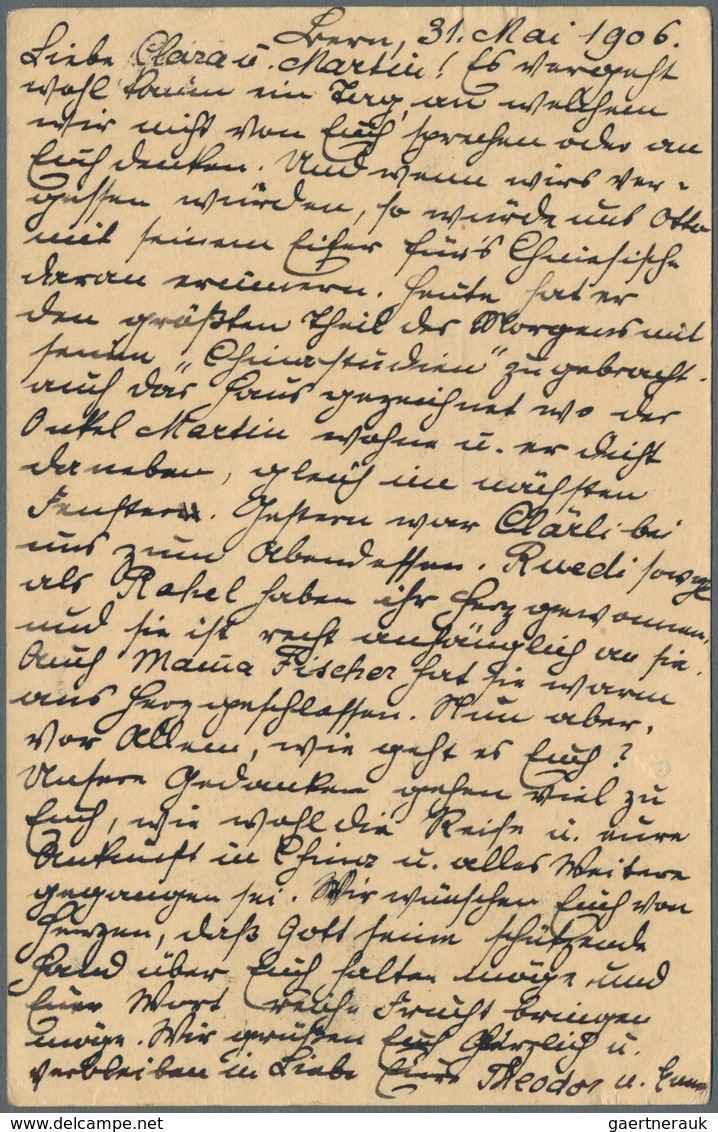 Bern, 31. Mai 1906.
Liebe Clara u. Martin! Es vergeht
wohl kaum ein Tag, an welchem
wir nicht von Euch sprechen oder an
Euch denken. Und wenn wirs ver-
gessen würden, so würde uns Otto
mit seinem Eifer für's Chinesische
daran erinnern. Heute hat er
den größten Theil des Morgens mit
seinen "Chinastudien" zugebracht.
auch das Haus gezeichnet wo der
Onkel Martin wohne u. er dicht
daneben, gleich im nächsten
Fenster. Gestern war Clärli bei
uns zum Abendessen. Ruedi sowohl
als Rahel haben ihr Herz gewonnen,
und sie ist recht anhänglich an sie.
Auch Mama Fischer hat sie warm
ans Herz geschlossen. Nun aber,
vor Allem, wie geht es Euch?
Unsere Gedanken gehen viel zu
Euch, wie wohl die Reise u. eure
Ankunft in China u. alles Weitere
gegangen sei. Wir wünschen Euch von
Herzen, daß Gott seine schützende
Hand über Euch halten möge und
Euer Wort reiche Frucht bringen
möge. Wir grüßen Euch herzlich u.
verbleiben in Liebe Eure Theodor u.
gaertnerauk